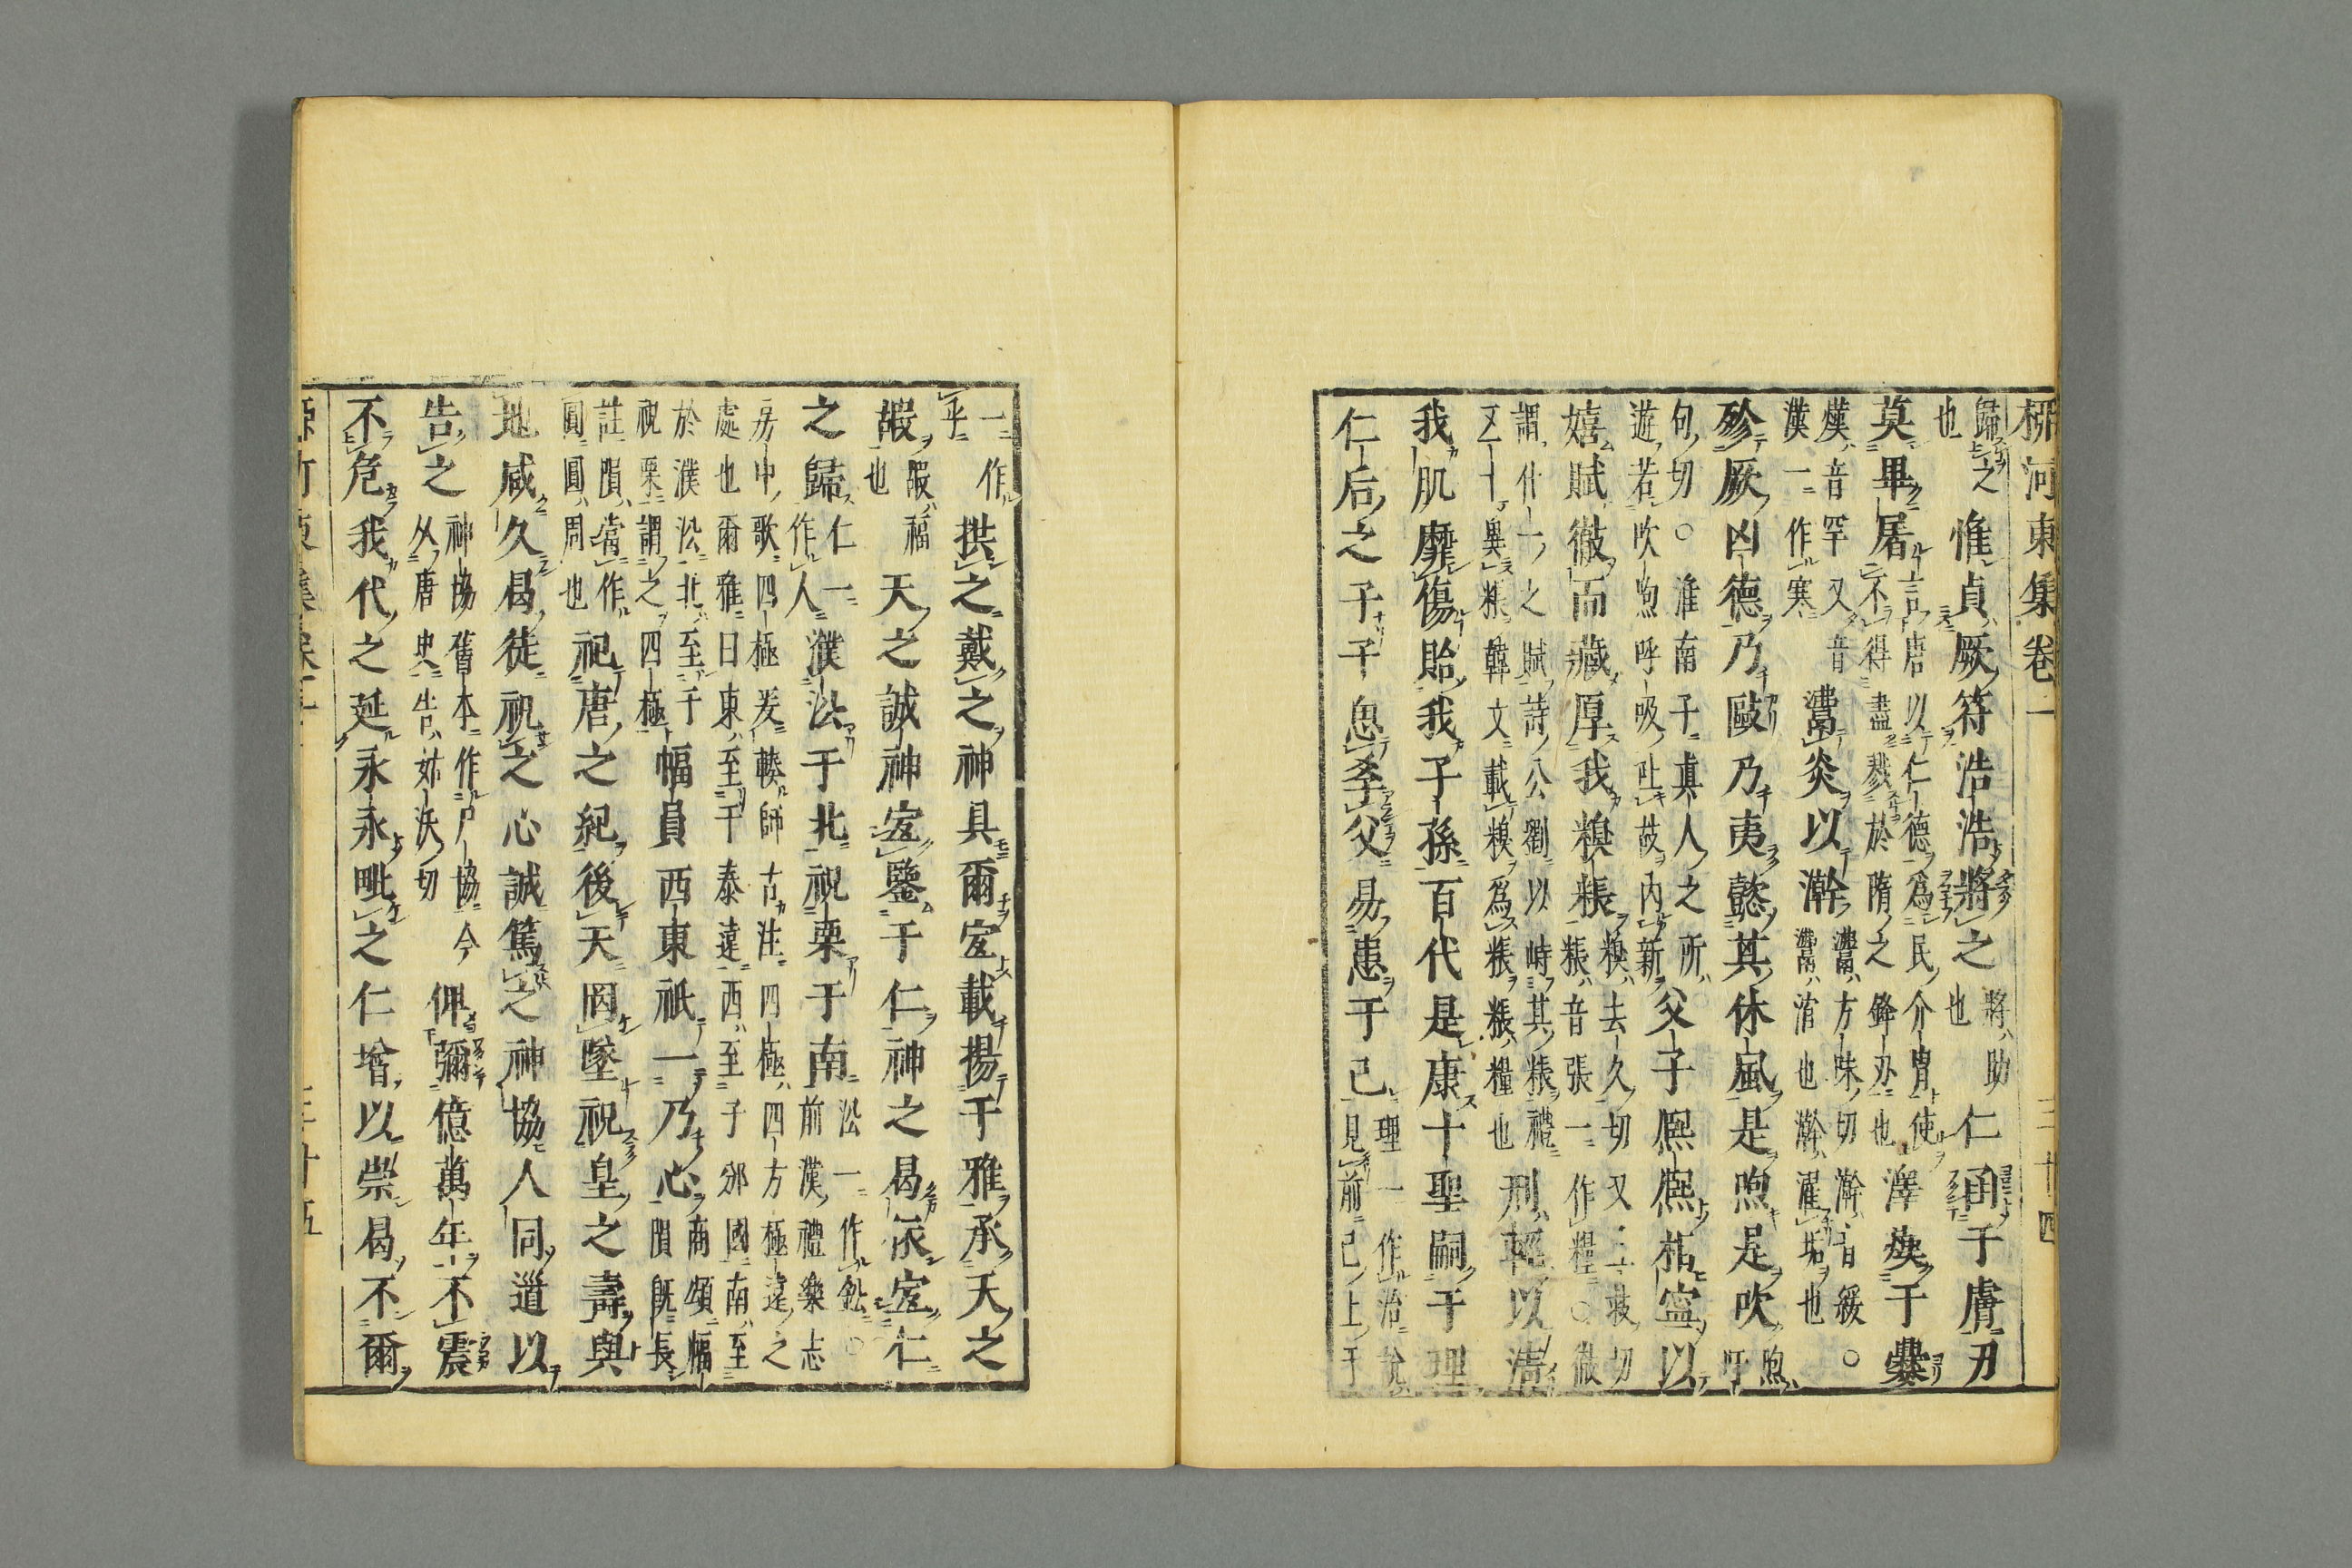 柳河東集卷一 三十四
歸之
也
惟貞厥符浩浩將之
將助
也
仁函于膚刃
莫畢屠
言唐以仁德爲民介冑使
不得盡戮於隋之鋒刃也
澤熯于爨
熯音罕又音
漢一作寒
𩱛炎以澣
𩱛方味切澣音緩○
𩱛涫也澣濯垢也
殄厥凶德乃敺乃夷懿其休風是煦是吹
煦
呼
句切○淮南子真人之所
遊若吹呴呼吸吐故内新
父子熙熙相寧以
嬉賦徹而藏厚我糗粻
糗去久切又丘救切
粻音張一作糧○徹
謂什一之賦詩公劉以峙其粻禮
又十異粻韓文載糗爲粻粻糧也
刑輕以清
我肌靡傷貽我子孫百代是康十聖嗣于理
仁后之子子思孝父易患于己
理一作治說
見前己上于
一作
乎
拱之戴之神具爾宜載揚于雅承天之
嘏
嘏福
也
天之誠神宜鑒于仁神之曷依宜仁
之歸
仁一
作人
濮㳂于北祝栗于南
㳂一作鈆○
前漢禮樂志
房中歌四極爰轃師古注四極四方極遠之
處也爾雅曰東至于泰遠西至于邠國南至
於濮㳂北至于
祝栗謂之四極
幅員西東祇一乃心
商頌幅
隕既長
註隕當作
圓圓周也
祀唐之紀後天罔墜祝皇之壽與
地咸久曷徒祝之心誠篤之神協人同道以
告之
神協舊本作尸協今
从唐史告姑沃切
俾彌億萬年不震
不危我代之延永永毗之仁增以崇曷不爾